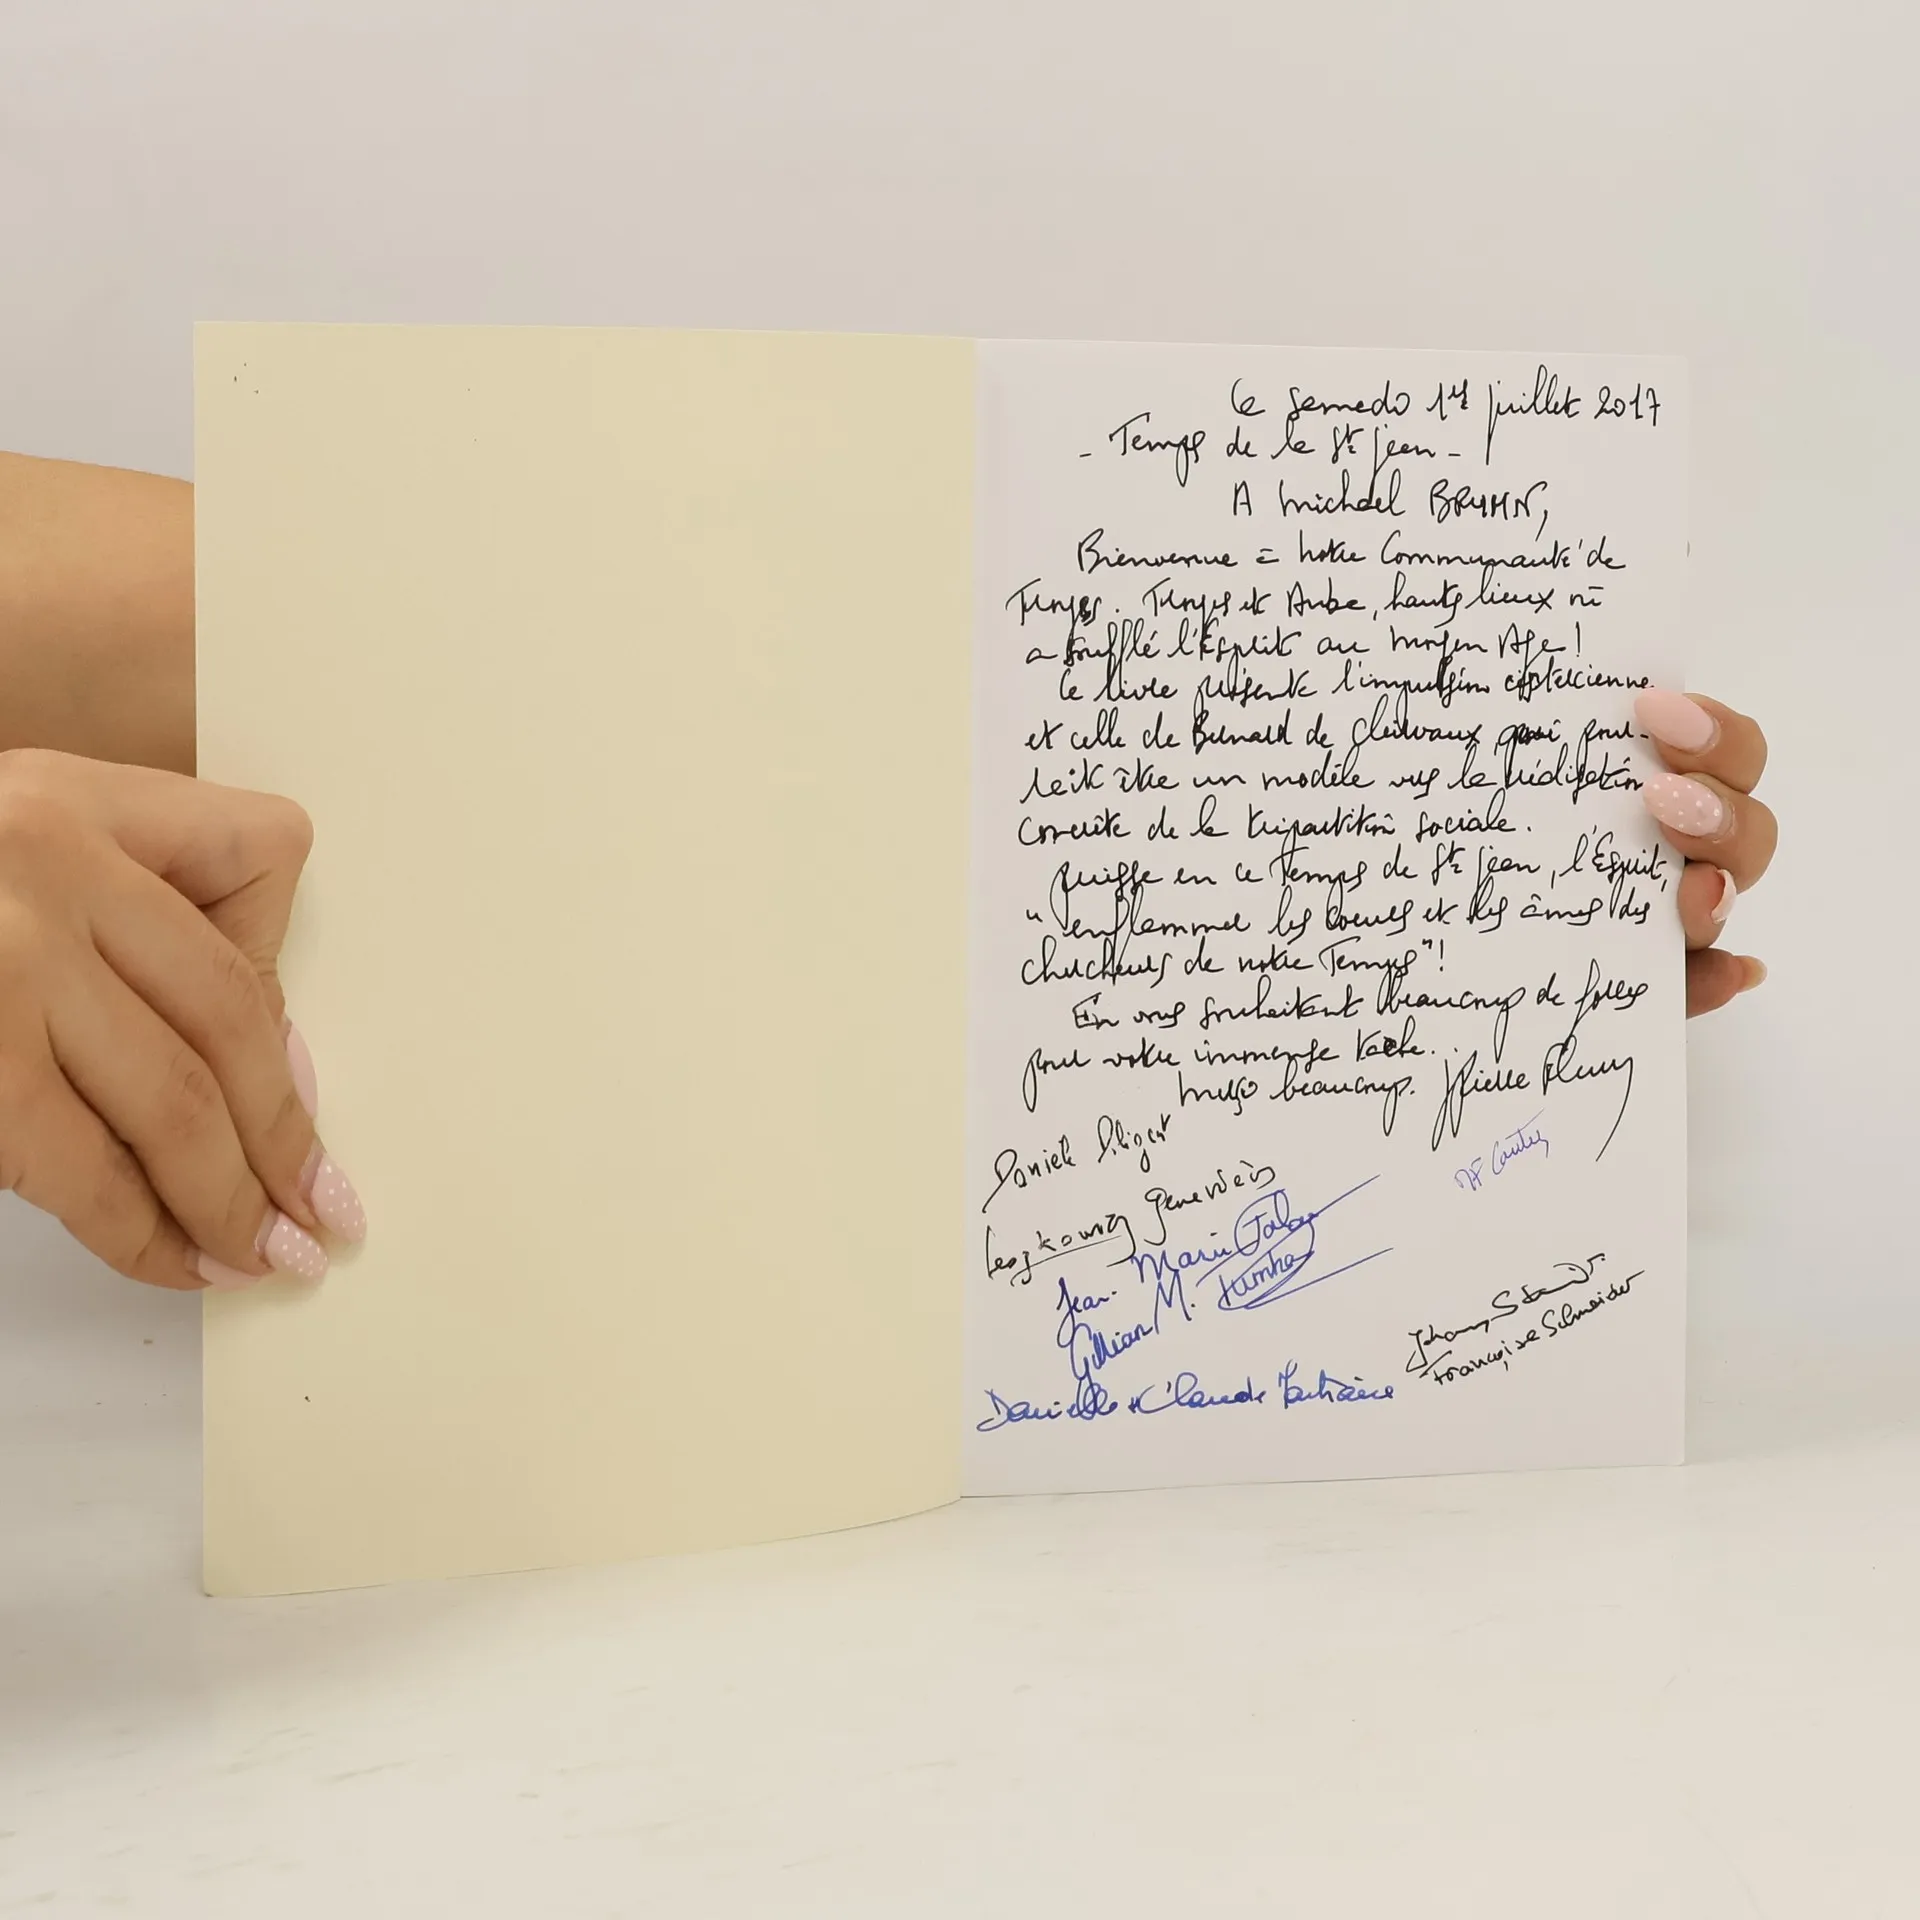 Le samedi 1er juillet 2017
- Temps de la St Jean -
A Michael BRUHN,
Bienvenue à notre Communauté de
Troyes. Troyes et Aube, hauts lieux où
a soufflé l'Esprit au Moyen Age !
Ce livre présente l'impulsion cistercienne
et celle de Bernard de Clairvaux, qui pour-
rait être un modèle vers la réalisation
concrète de la tripartition sociale.
Puisse en ce Temps de St Jean, l'Esprit,
" enflammer les coeurs et les âmes des
chercheurs de notre Temps" !
En vous souhaitant beaucoup de forces
pour votre immense tâche. .
Merci beaucoup. Pierre Fleury
Daniele Diligent
MF
Geneviève
Jean-Marie
Gillian M.
Françoise Schneider
Danielle + Claude